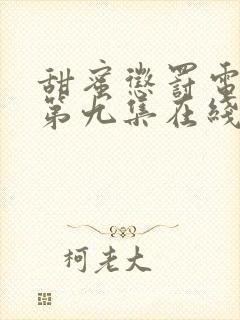 甜蜜懲罰電
第九集在綫
柯老大